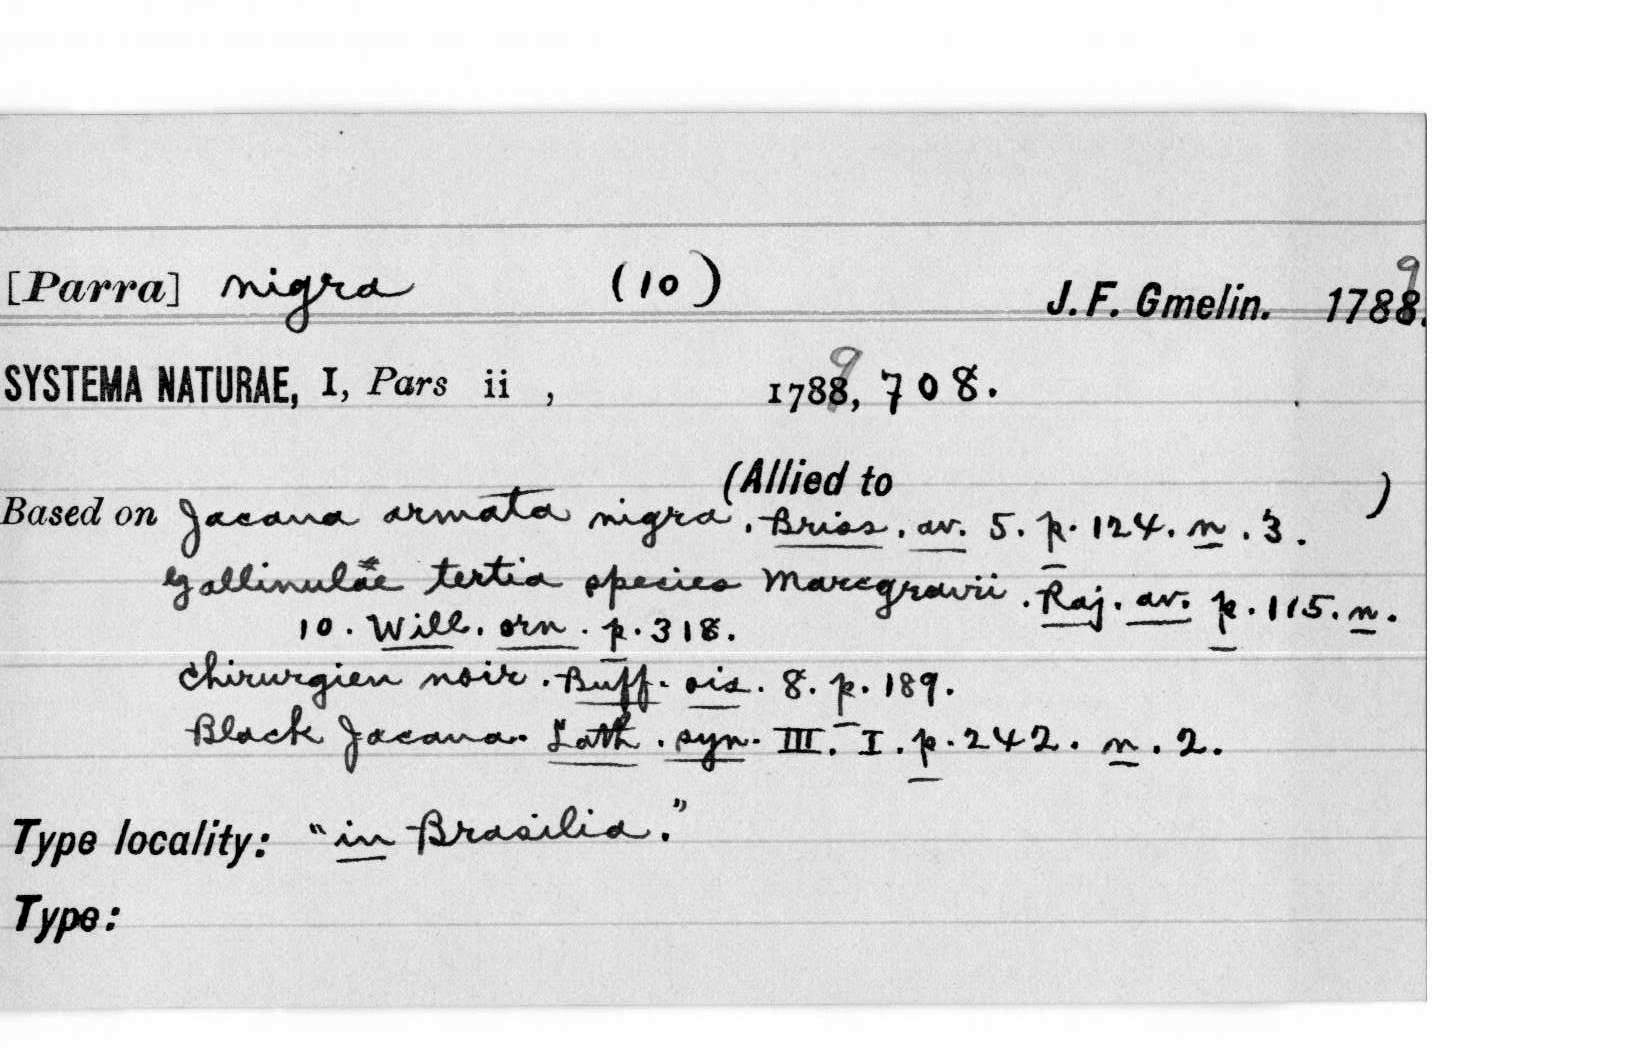 [Parra] nigra (10) J. F. Gmelin. 1788. 9
SYSTEMA NATURAE, I, Pars ii , 1788, 9 708.
(Allied to )
Based on Jacana armata nigra. Briss. av. 5. p. 124. n. 3.
Gallinulae tertia species Marcgravii. Raj. av. p. 115. n.
10. Will. orn. p. 318.
Chirurgien noir. Buff. ois. 8. p. 189.
Black Jacana. Lath. syn. III. I. p. 242. n. 2.
Type locality: "in Brasilia."
Type: